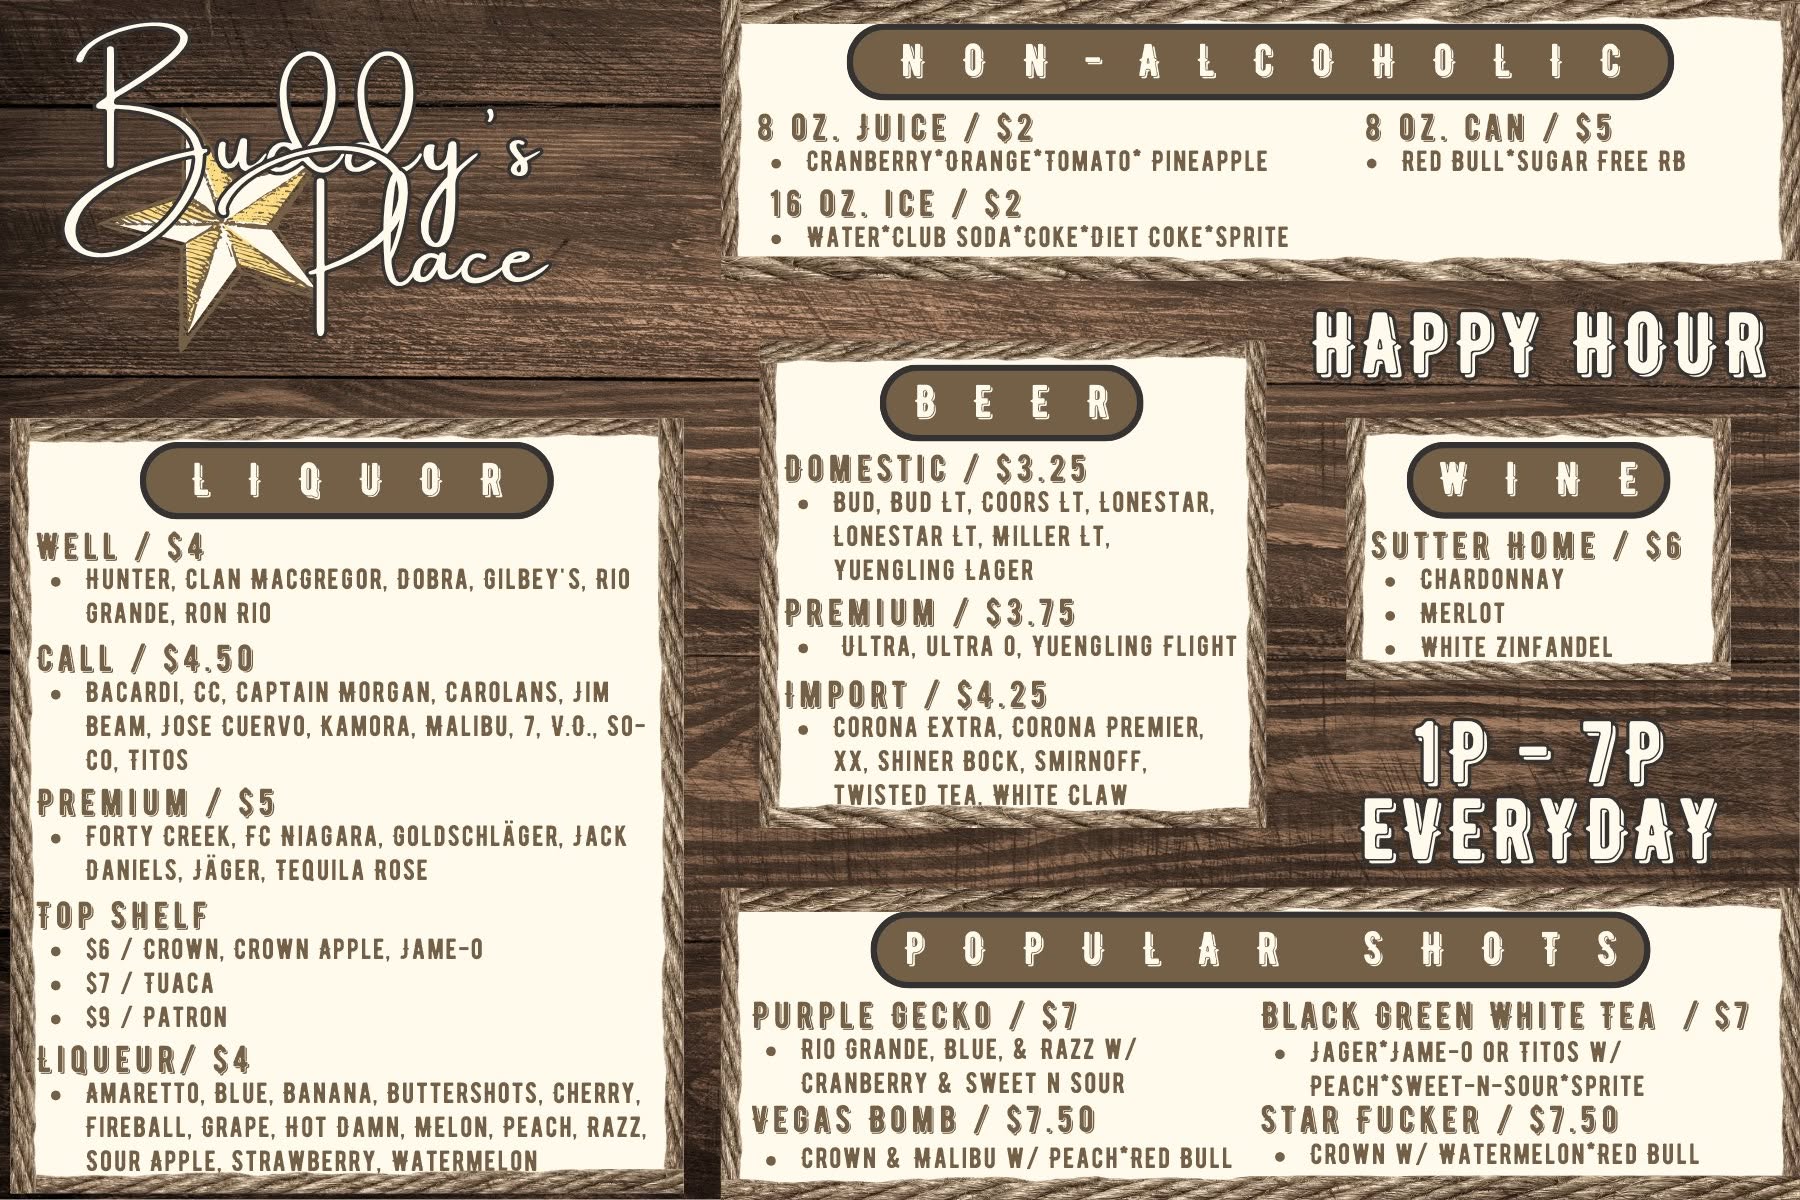 Buddy's
Place
NON-ALCOHOLIC
8 OZ. JUICE / $2
• CRANBERRY*ORANGE*TOMATO* PINEAPPLE
16 OZ. ICE / $2
• WATER*CLUB SODA*COKE*DIET COKE*SPRITE
8 OZ. CAN / $5
• RED BULL*SUGAR FREE RB
HAPPY HOUR
LIQUOR
WELL / $4
• HUNTER, CLAN MACGREGOR, DOBRA, GILBEY'S, RIO
GRANDE, RON RIO
CALL / $4.50
• BACARDI, CC, CAPTAIN MORGAN, CAROLANS, JIM
BEAM, JOSE CUERVO, KAMORA, MALIBU, 7, V.O., SO-
CO, TITOS
PREMIUM / $5
• FORTY CREEK, FC NIAGARA, GOLDSCHLÄGER, JACK
DANIELS, JÄGER, TEQUILA ROSE
TOP SHELF
• $6 / CROWN, CROWN APPLE, JAME-O
• $7 / TUACA
• $9 / PATRON
LIQUEUR/ $4
• AMARETTO, BLUE, BANANA, BUTTERSHOTS, CHERRY,
FIREBALL, GRAPE, HOT DAMN, MELON, PEACH, RAZZ,
SOUR APPLE, STRAWBERRY, WATERMELON
BEER
DOMESTIC / $3.25
• BUD, BUD LT, COORS LT, LONESTAR,
LONESTAR LT, MILLER LT,
YUENGLING LAGER
PREMIUM / $3.75
• ULTRA, ULTRA O, YUENGLING FLIGHT
IMPORT / $4.25
• CORONA EXTRA, CORONA PREMIER,
XX, SHINER BOCK, SMIRNOFF,
TWISTED TEA, WHITE CLAW
WINE
SUTTER HOME / $6
• CHARDONNAY
• MERLOT
• WHITE ZINFANDEL
1P - 7P
EVERYDAY
POPULAR SHOTS
PURPLE GECKO / $7
• RIO GRANDE, BLUE, & RAZZ W/
CRANBERRY & SWEET N SOUR
VEGAS BOMB / $7.50
• CROWN & MALIBU W/ PEACH*RED BULL
BLACK GREEN WHITE TEA / $7
• JAGER*JAME-O OR TITOS W/
PEACH*SWEET-N-SOUR*SPRITE
STAR FUCKER / $7.50
• CROWN W/ WATERMELON*RED BULL